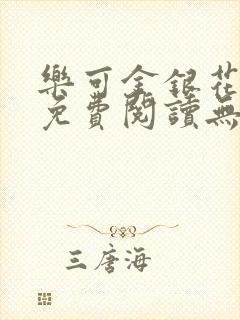 樂可金銀花
免費閱讀無
三唐海